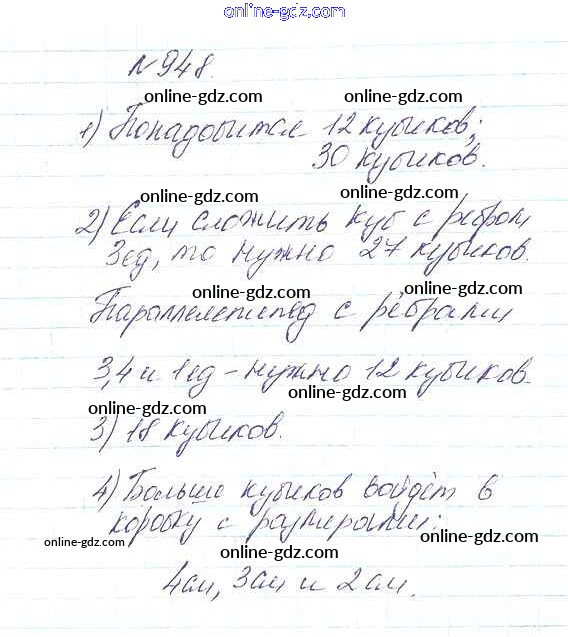 online-gdz.com
№948.
online-gdz.com online-gdz.com
1) Понадобится 12 кубиков;
30 кубиков.
online-gdz.com online-gdz.com
2) Если сложить куб с ребром
3ед, то нужно 27 кубиков.
online-gdz.com online-gdz.com
Параллелепипед с рёбрами
online-gdz.com online-gdz.com
3,4 и 1ед - нужно 12 кубиков.
online-gdz.com online-gdz.com
3) 18 кубиков.
online-gdz.com online-gdz.com
4) Больше кубиков войдёт в
коробку с размерами:
online-gdz.com online-gdz.com online-gdz.com
4см, 3см и 2см.